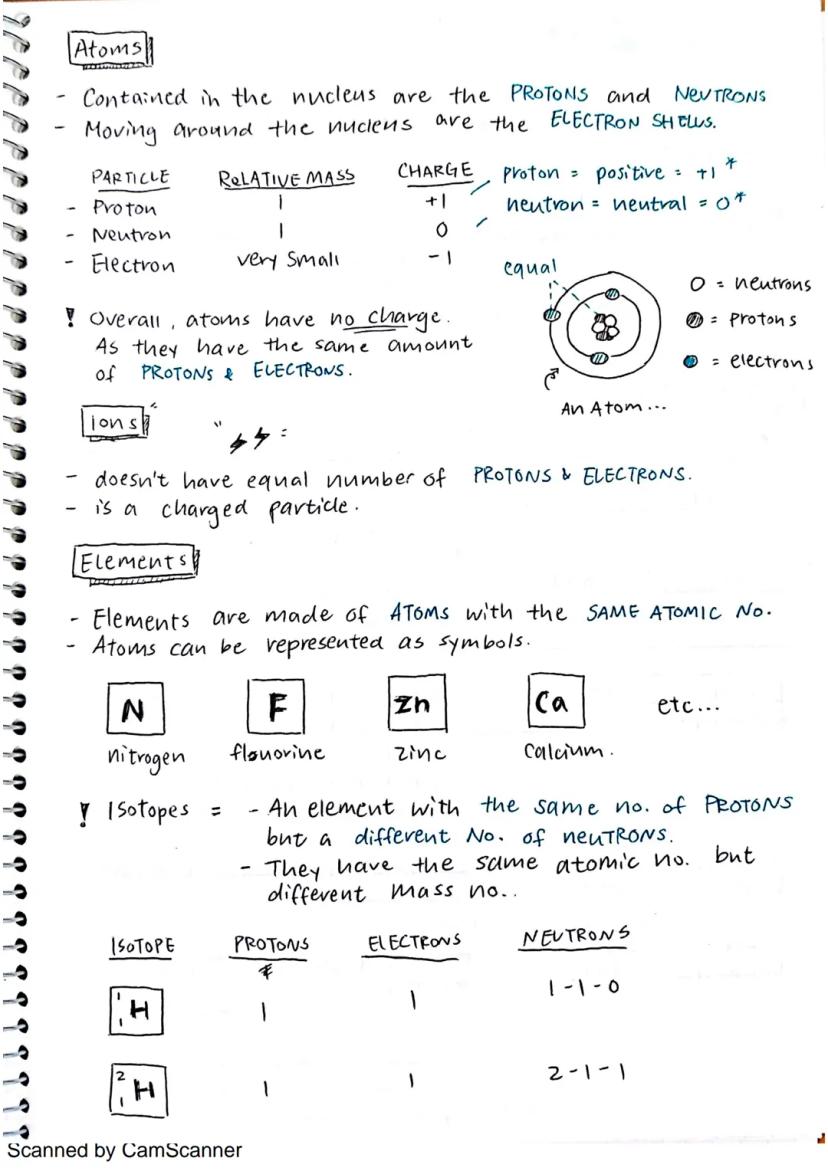 Atoms
- Contained in the nucleus are the PROTONS and NEUTRONS
- Moving around the nucleus are the ELECTRON SHELLS.
PARTICLE RELATIVE MASS CHARGE
- Proton 1 +1
- Neutron 1 0
- Electron very small -1
proton = positive = +1 *
neutron = neutral = 0*
equal
O = neutrons
= protons
= electrons
An Atom...
! Overall, atoms have no charge.
As they have the same amount
of PROTONS & ELECTRONS.
Ions
- doesn't have equal number of PROTONS & ELECTRONS.
- is a charged particle.
Elements
- Elements are made of ATOMS with the SAME ATOMIC NO.
- Atoms can be represented as symbols.
N F Zn Ca etc...
nitrogen flouorine zinc calcium.
! Isotopes = - An element with the same no. of PROTONS
but a different No. of neUTRONS.
- They have the same atomic no. but
different mass no..
ISOTOPE PROTONS ELECTRONS NEUTRONS
1 1 H 1 1 1-1-0
2 1 H 1 1 2-1-1
Scanned by CamScanner